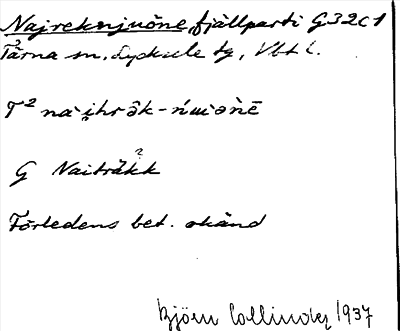 Najreknjuöne fjällparti G32C1
Tärna sn, Lycksele tg, Vbt l.
G Naiträkk
Förledens bet. okänd
Björn Collinder 1937